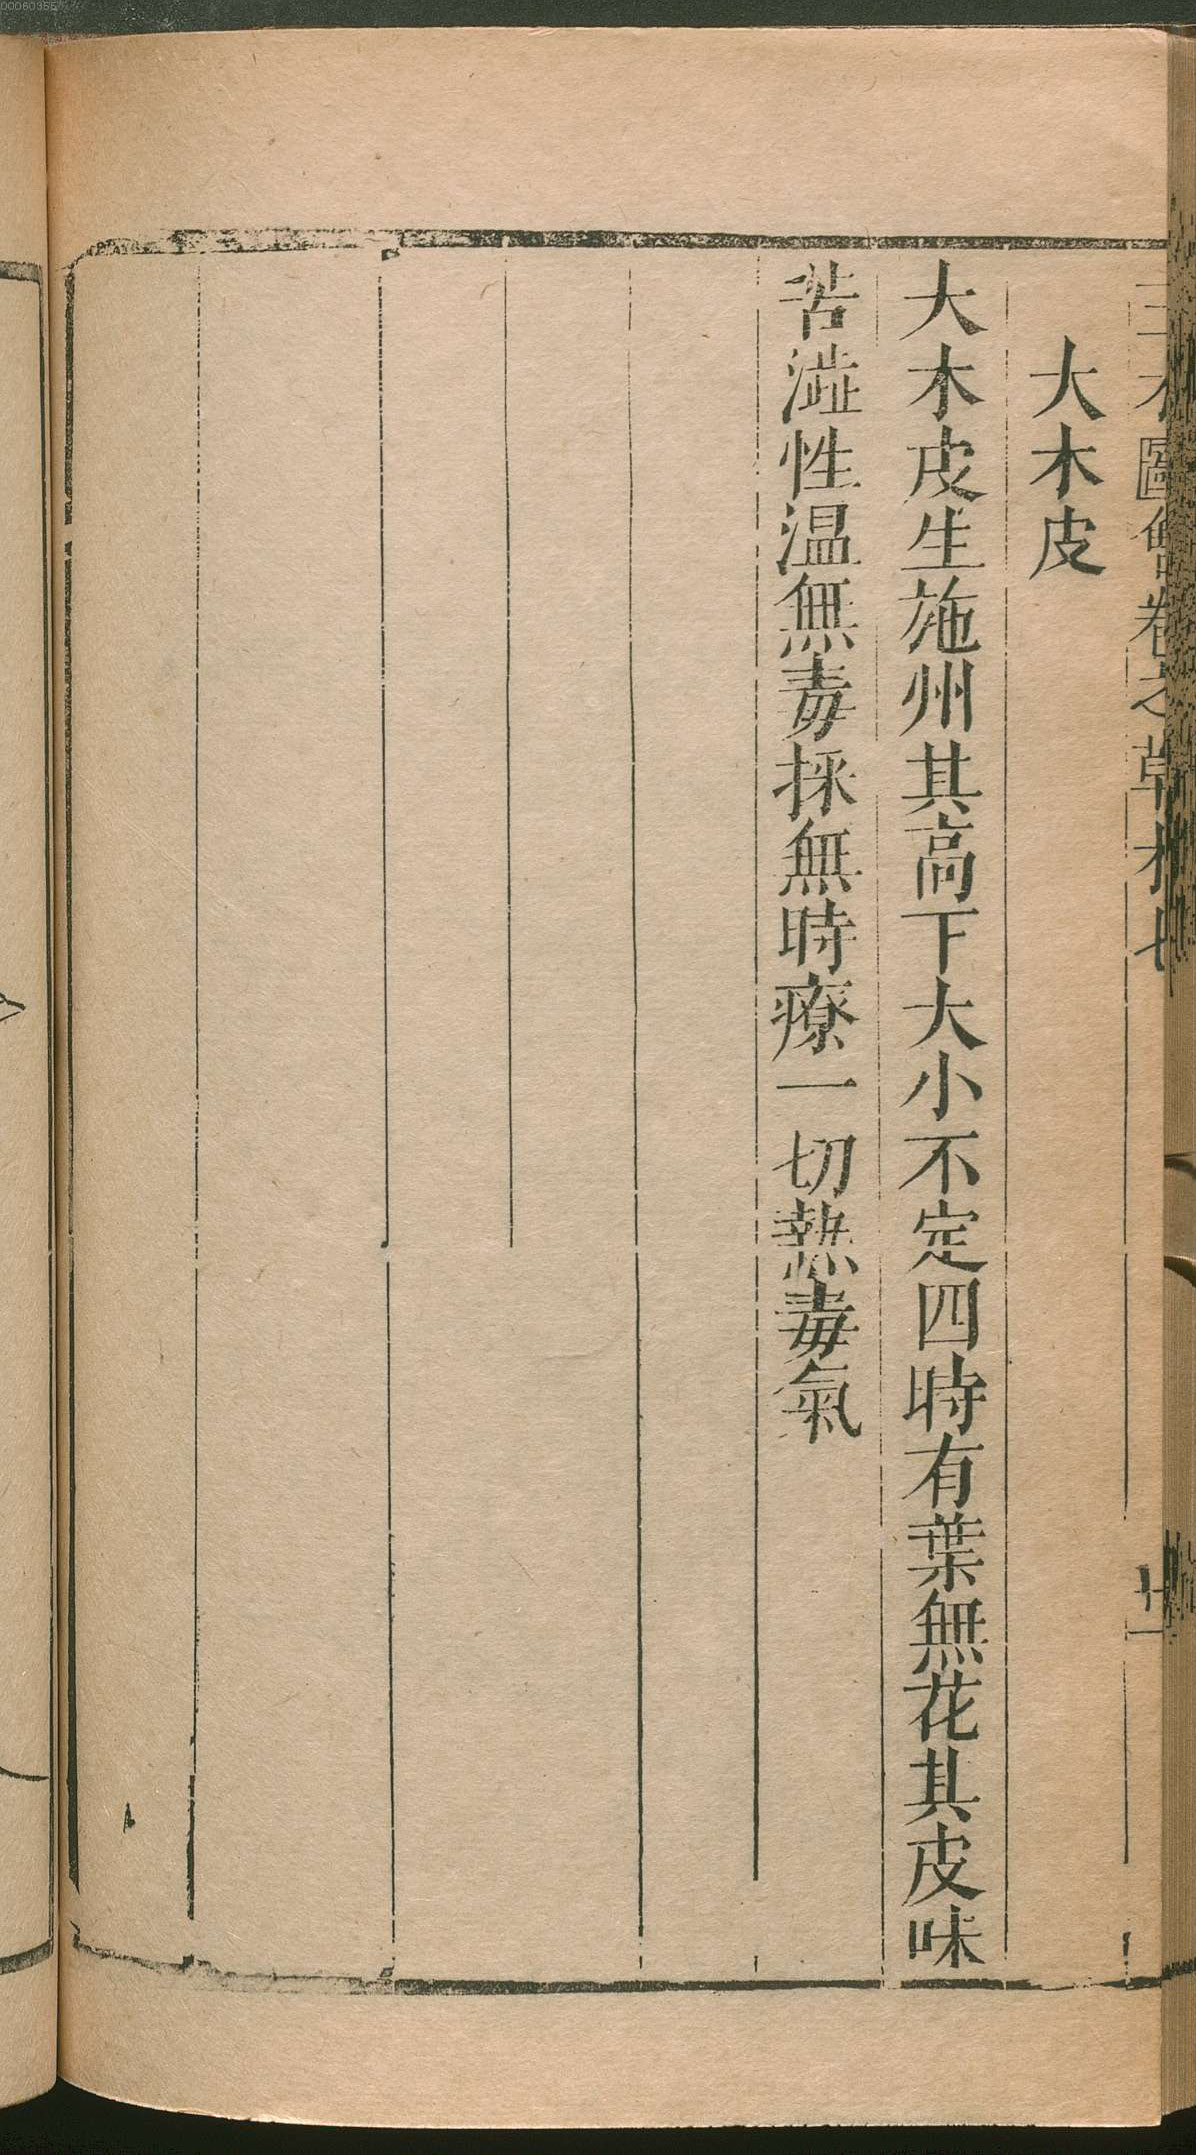 三才圖會卷之草木七
廿一
大木皮
大木皮生施州其高下大小不定四時有葉無花其皮味
苦澁性温無毒採無時療一切熱毒氣
00060355